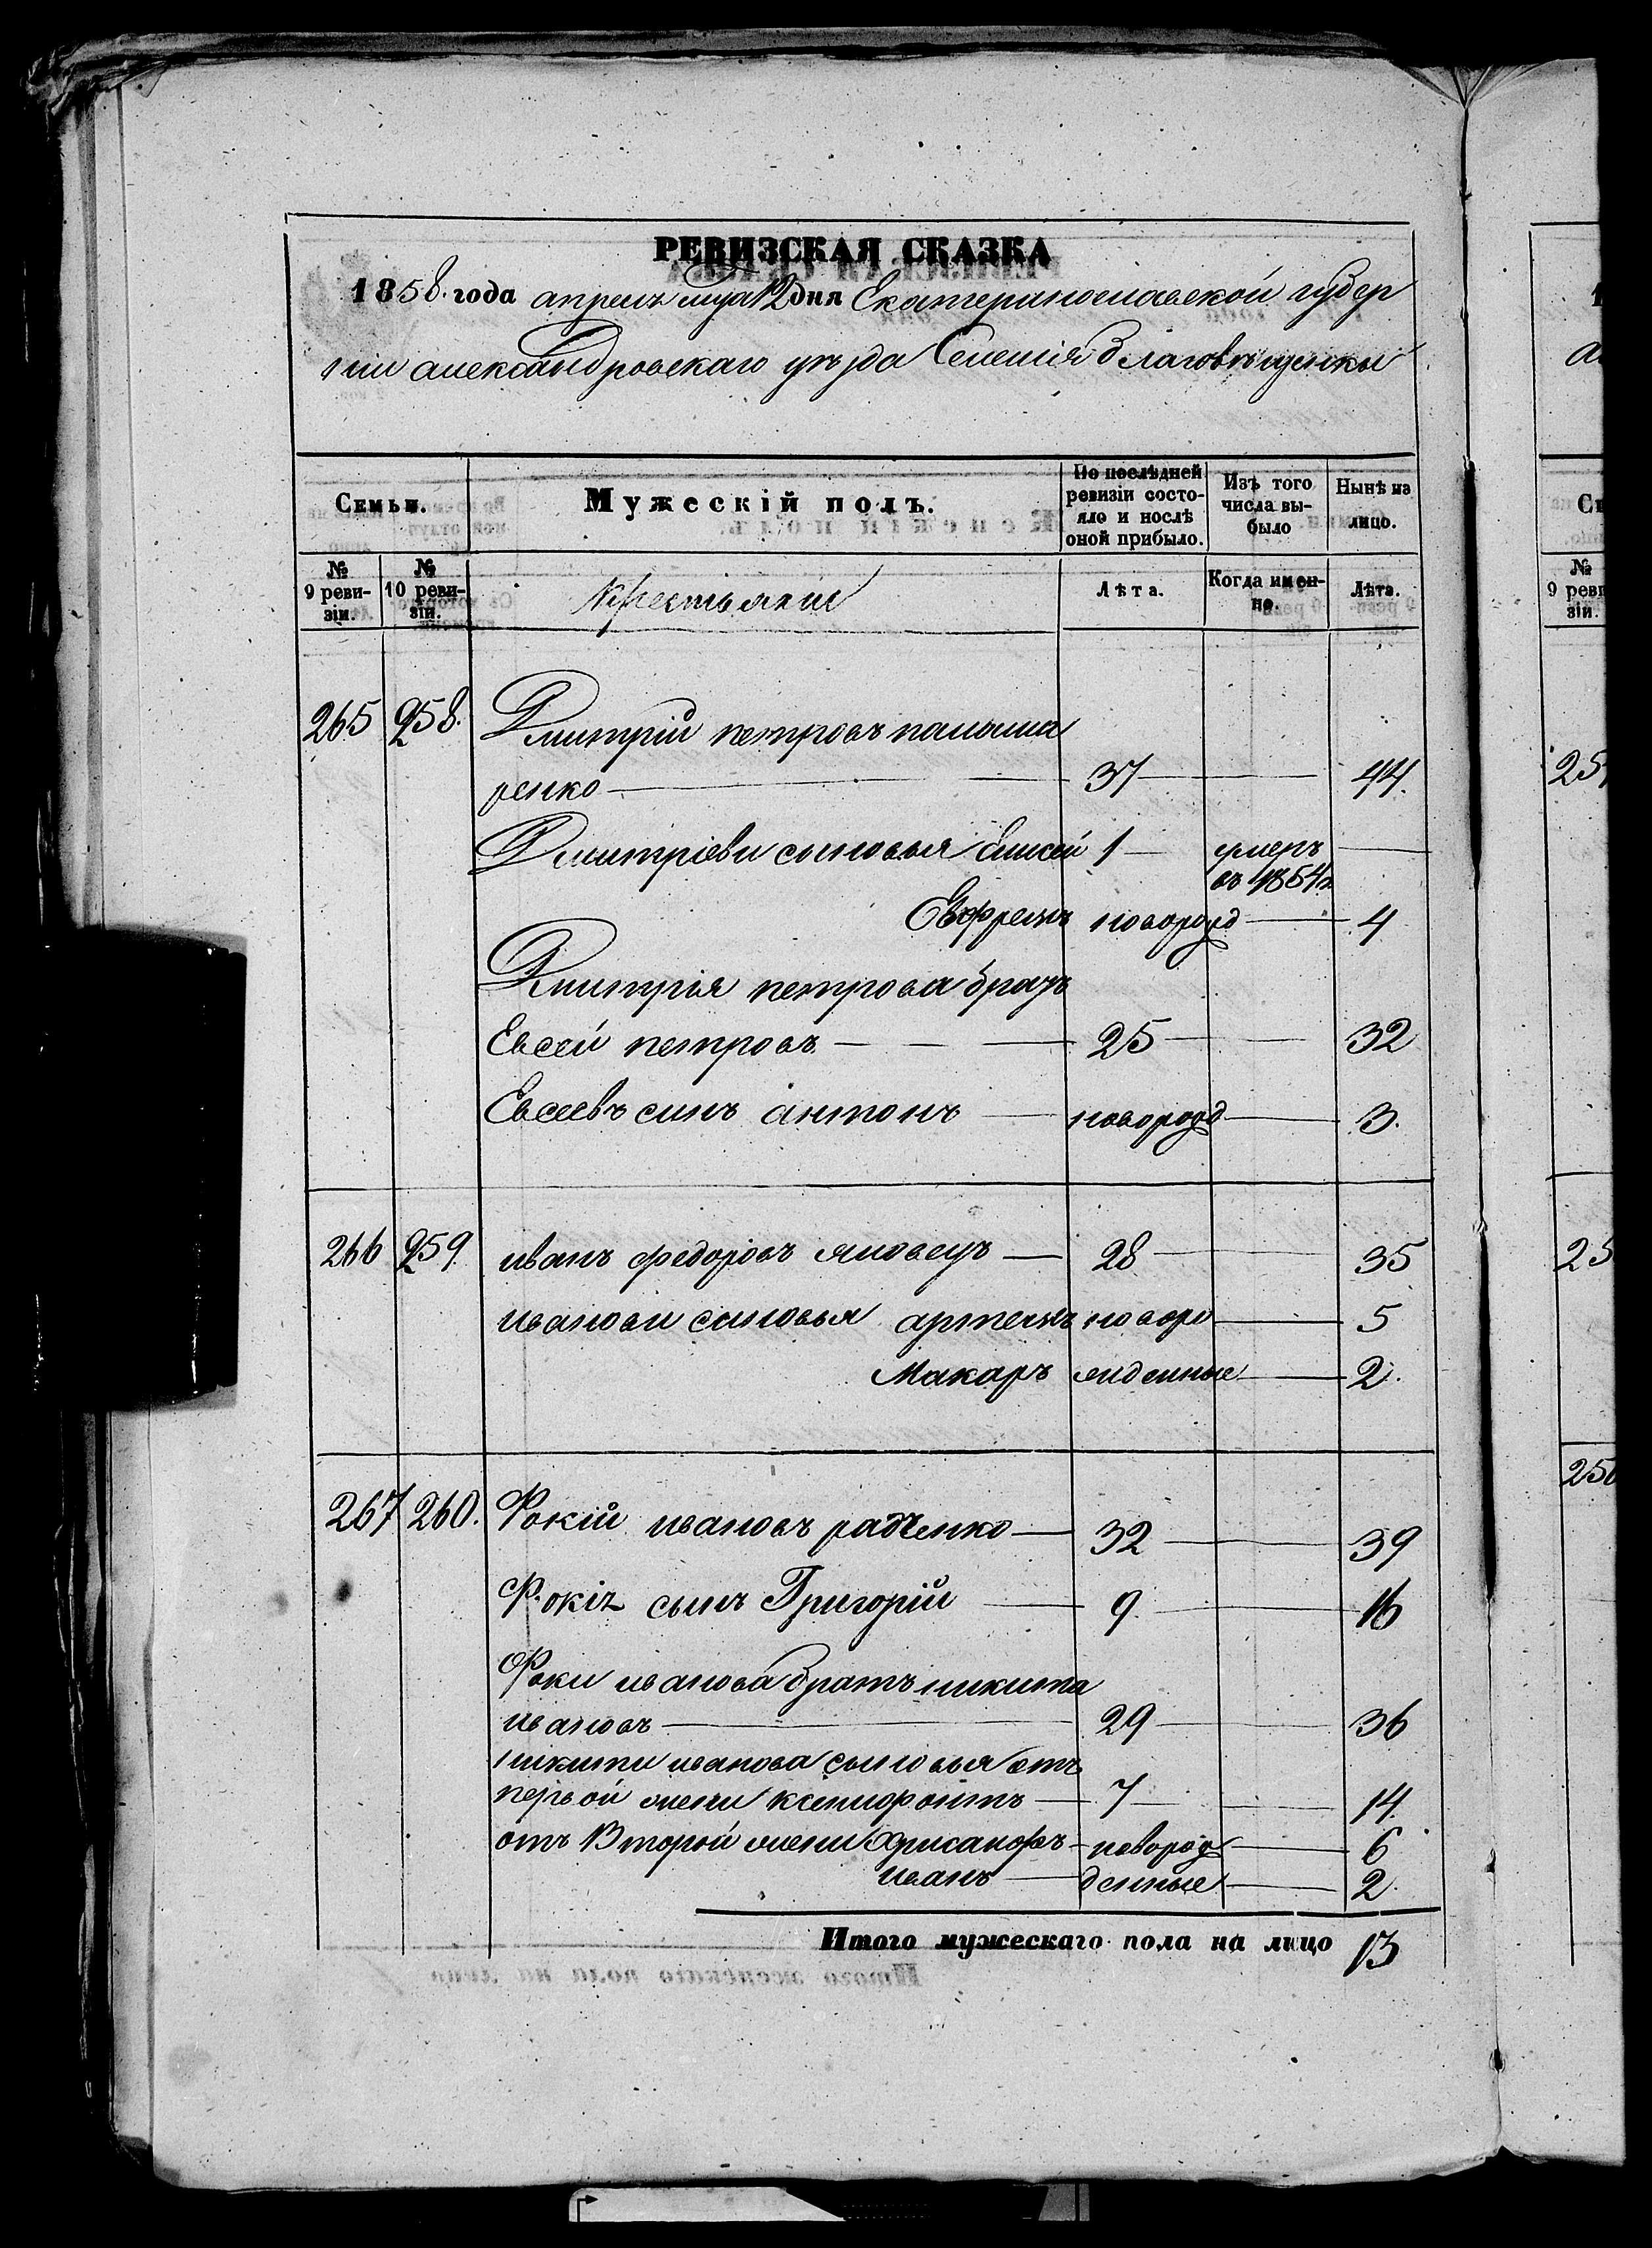 РЕВИЗСКАЯ СКАЗКА
1858. года апрель м-ца 12 дня Екатеринославской губер
нии александровскаго уезда Селенія благовѣщенки
Семьи. Мужескій полъ. По послѣдней ревизіи состояло и послѣ оной прибыло. Изъ того числа выбыло Нынѣ на лицо.
№ 9 ревизіи. № 10 ревизіи. Крестьяние Лѣта. Когда именно. Лѣта.
265 258. Дмитрій петровъ
ренко 37 44.
Дмитріеви синовья 1 умеръ
въ 1854г
Ефремъ новорожд 4
Дмитрія петрова братъ
Евсей петровъ 25 32
Евсеевъ синъ антонъ новорожд 3.
266 259. иванъ федоровъ яновецъ 28 35
иванови синовья артемъ новоро 5
Макаръ жденные 2.
267 260. Фокій ивановъ радченко 32 39
Фокія сынъ Григорій 9 16
Фоки иванова братъ никита
ивановъ 29 36
никити иванова сыновья отъ
первой жени ксенофонтъ 7 14.
отъ Второй жени Хрисанфъ новорож 6
иванъ денные 2.
Итого мужескаго пола на лицо 13
251
25
250